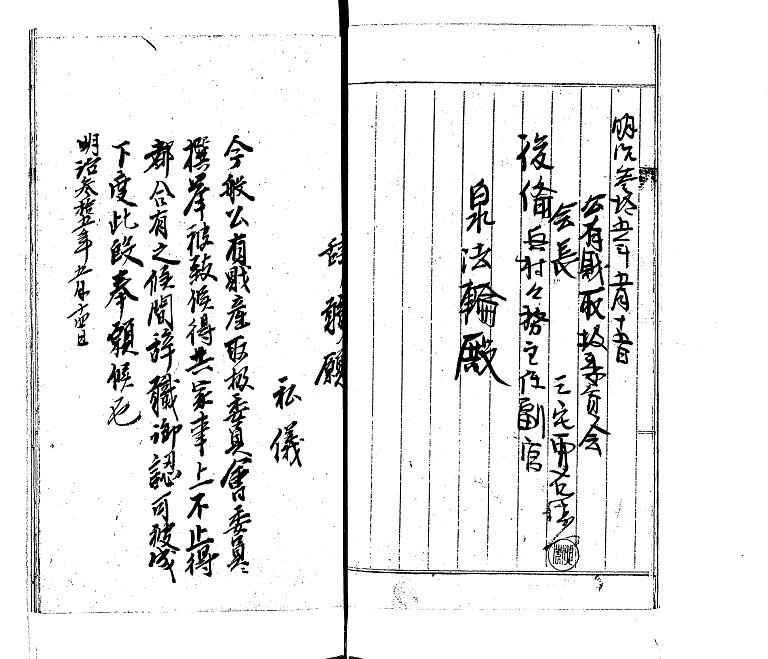 明治参拾五年五月十五日
公有財産取扱委員会
会長 三宅
後備兵村々務主任副官
泉法輪殿
辞職願
私儀
今般公有財産取扱委員會委員ニ
撰挙被致候得共家事上不止得
都合有之候間辞職御認可被成
下度此段奉願候也
明治参拾五年五月十四日